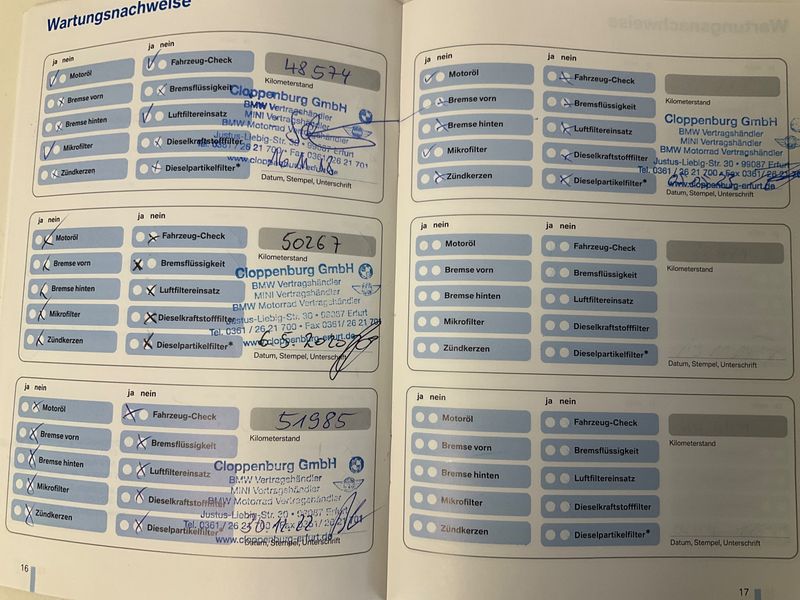 Wartungsnachweise
ja nein
ja nein
Motoröl
Fahrzeug-Check
48574
Kilometerstand
Bremse vorn
Bremsflüssigkeit
Bremse hinten
Luftfiltereinsatz
Mikrofilter
Dieselkraftstofffilter
Zündkerzen
Dieselpartikelfilter*
Cloppenburg GmbH
BMW Vertragshändler
MINI Vertragshändler
BMW Motorrad Vertragshändler
Justus-Liebig-Str. 30 • 99087 Erfurt
Tel. 0361 / 26 21 700 • Fax 0361/26 21 701
www.cloppenburg-erfurt.de
Datum, Stempel, Unterschrift
ja nein
ja nein
Motoröl
Fahrzeug-Check
50267
Kilometerstand
Bremse vorn
Bremsflüssigkeit
Bremse hinten
Luftfiltereinsatz
Mikrofilter
Dieselkraftstofffilter
Zündkerzen
Dieselpartikelfilter*
Cloppenburg GmbH
BMW Vertragshändler
MINI Vertragshändler
BMW Motorrad Vertragshändler
Justus-Liebig-Str. 30 • 99087 Erfurt
Tel. 0361 / 26 21 700 • Fax 0361/26 21 701
www.cloppenburg-erfurt.de
6.5.2020
Datum, Stempel, Unterschrift
ja nein
ja nein
Motoröl
Fahrzeug-Check
51985
Kilometerstand
Bremse vorn
Bremsflüssigkeit
Bremse hinten
Luftfiltereinsatz
Mikrofilter
Dieselkraftstofffilter
Zündkerzen
Dieselpartikelfilter*
Cloppenburg GmbH
BMW Vertragshändler
MINI Vertragshändler
BMW Motorrad Vertragshändler
Justus-Liebig-Str. 30 • 99087 Erfurt
www.cloppenburg-erfurt.de
Datum, Stempel, Unterschrift
16
ja nein
ja nein
Motoröl
Fahrzeug-Check
Kilometerstand
Bremse vorn
Bremsflüssigkeit
Bremse hinten
Luftfiltereinsatz
Mikrofilter
Dieselkraftstofffilter
Zündkerzen
Dieselpartikelfilter*
Cloppenburg GmbH
BMW Vertragshändler
MINI Vertragshändler
BMW Motorrad Vertragshändler
Justus-Liebig-Str. 30 • 99087 Erfurt
Tel. 0361 / 26 21 700 • Fax 0361/ 26 21
www.cloppenburg-erfurt.de
Datum, Stempel, Unterschrift
ja nein
ja nein
Motoröl
Fahrzeug-Check
Kilometerstand
Bremse vorn
Bremsflüssigkeit
Bremse hinten
Luftfiltereinsatz
Mikrofilter
Dieselkraftstofffilter
Zündkerzen
Dieselpartikelfilter*
Datum, Stempel, Unterschrift
ja nein
ja nein
Motoröl
Fahrzeug-Check
Kilometerstand
Bremse vorn
Bremsflüssigkeit
Bremse hinten
Luftfiltereinsatz
Mikrofilter
Dieselkraftstofffilter
Zündkerzen
Dieselpartikelfilter*
Datum, Stempel, Unterschrift
17